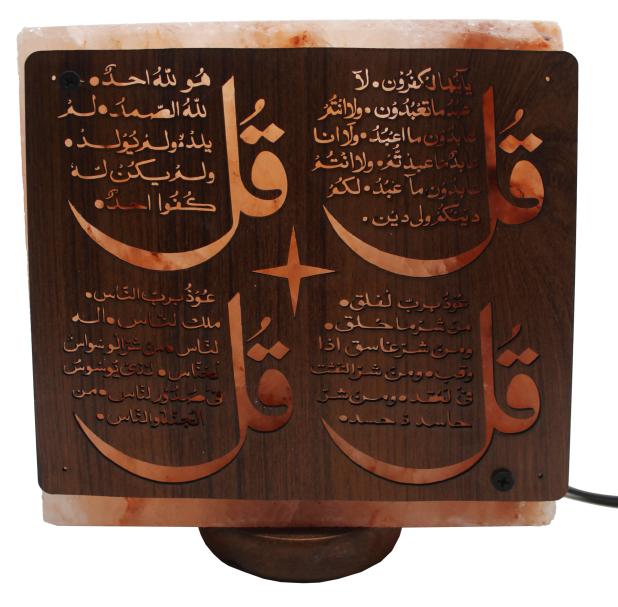 قُل
يأيها لكفرون • لا
عبد ما تعبدون • ولا انتم
عابدون ما اعبد • ولا انا
عابد ما عبدتم • ولا انتم
عابدون ما عبد • لكم
دينكم ولى دين •
قُل
هو لله احد •
لله الصمد • لم
يلد • ولم يولد •
ولم يكن له
كفوا احد •
قُل
عوذ برب لفلق •
من شر ما خلق •
ومن شر غاسق اذا
وقب • ومن شر النفثت
فى لعقد • ومن شر
حاسد ذ حسد •
قُل
عوذ برب الناس •
ملك لناس • اله
لناس • من شر الوسواس
لخناس • لذى يوسوس
فى صدور لناس • من
الجنة والناس •